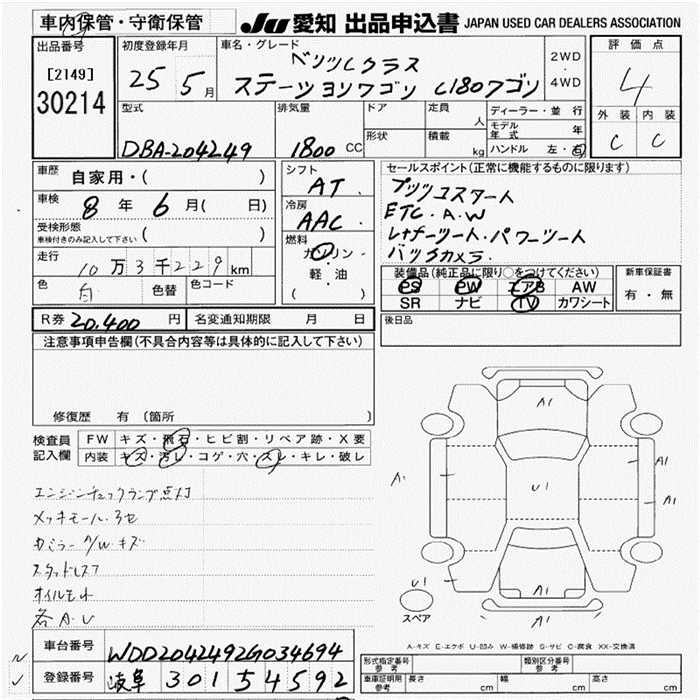 車内保管・守衛保管
JU 愛知 出品申込書 JAPAN USED CAR DEALERS ASSOCIATION
出品番号
[2149]
30214
初度登録年月
25 5月
車名・グレード
ベンツCクラス
ステーションワゴン C180ワゴン
2WD
・
4WD
評価点
4
外装 内装
C C
型式
DBA-204249
排気量
1800 CC
ドア
形状
定員 人
積載 kg
ディーラー・並行
モデル年式 年
ハンドル 左・右
車歴
自家用・( )
車検
8年 6月( 日)
受検形態
車検付きのみ記入して下さい ( )
走行
10万3千229km
色
白
色替
色コード
シフト
AT
冷房
AAC
燃料
ガソリン・
軽・油
( )
セールスポイント(正常に機能するものに限ります)
プッシュスタート
ETC・A.W
レザーシート・パワーシート
バックカメラ
装備品(純正品に限り〇をつけてください)
PS PW エアB AW
SR ナビ TV カワシート
新車保証書
有・無
R券 20,400円
名変通知期限 月 日
後日品
注意事項申告欄(不具合内容等は具体的に記入して下さい)
修復歴 有〔箇所 〕
検査員記入欄
FW キズ・飛石・ヒビ割・リペア跡・X要
内装 キズ・汚レ・コゲ・穴・スレ・キレ・破レ
エンジンチェックランプ点灯
メッキモール・ヤセ
カミラー A/W・キズ
スタッドレス7
オイルモレ
各A・U
A1
A1
A1
A1
U1
A1
U1
A1
スペア
A-キズ E-エクボ U-凹み W-補修跡 S-サビ C-腐食 XX-交換済
車台番号
WDD2042492G034694
登録番号
岐阜 301 5 4592
形式指定番号
参考
類別区分番号
参考
車庫証明用
参考
長さ cm 幅 cm 高さ cm